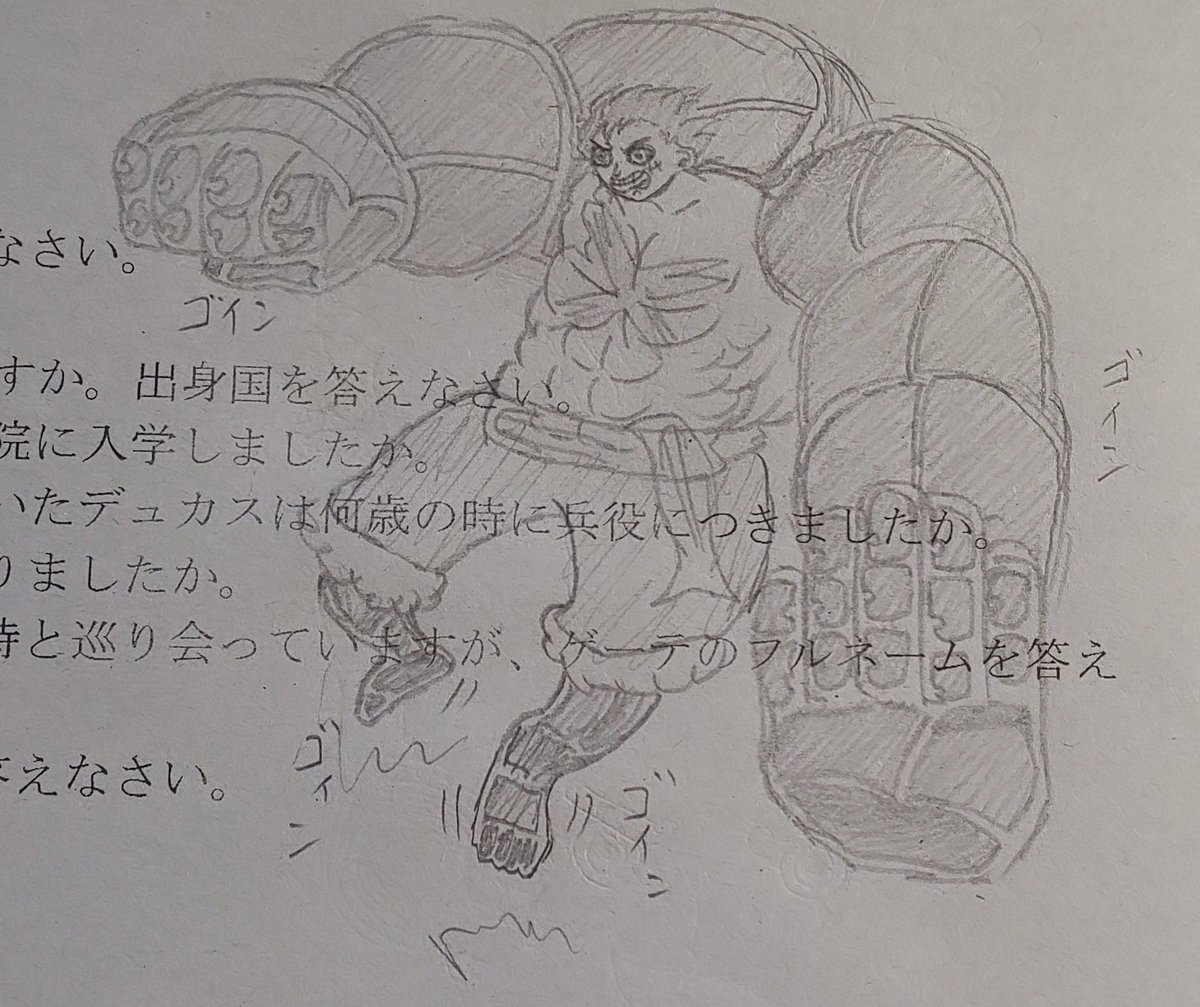 なさい。
ゴイン
すか。出身国を答えなさい。
ゴイン
院に入学しましたか。
いたデュカスは何歳の時に兵役につきましたか。
りましたか。
詩と巡り会っていますが、ゲーテのフルネームを答え
えなさい。
ゴイン
ゴイン